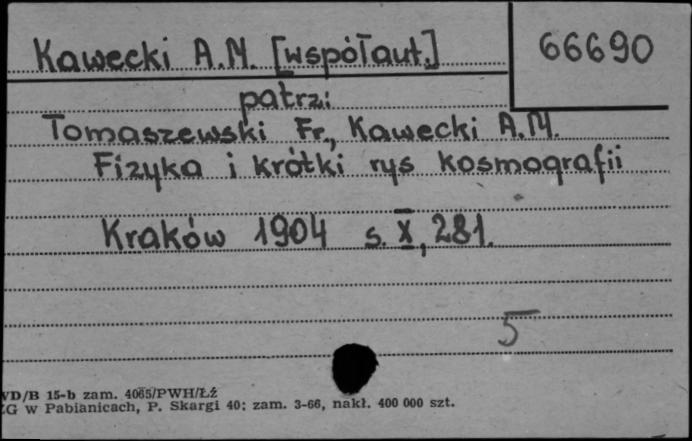 Kawecki A.M. [współaut.]
66690
patrz:
Tomaszewski Fr., Kawecki A.M.
Fizyka i krótki rys kosmografii
Kraków 1904 s. X, 281.
5
VD/B 15-b zam. 4065/PWH/Łź
ZG w Pabianicach, P. Skargi 40; zam. 3-66, nakł. 400 000 szt.